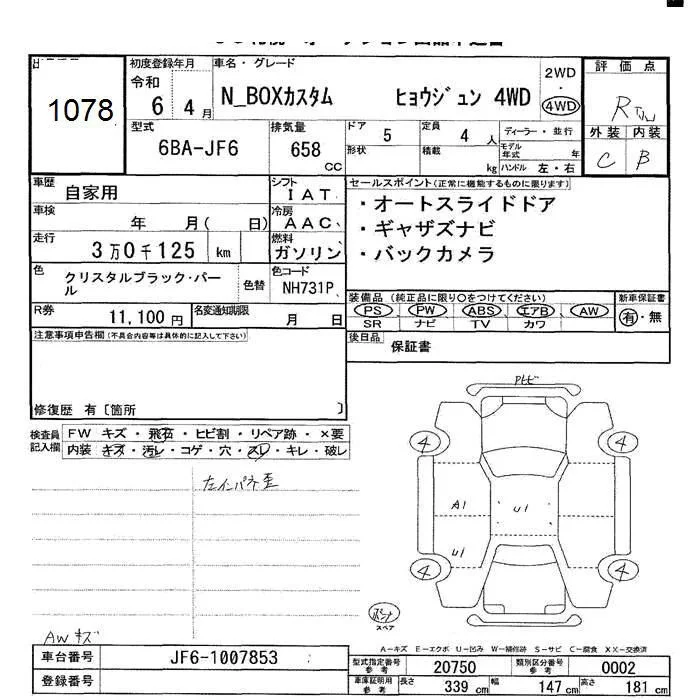 出
1078
初度登録年月
令和
6 4 月
車名・グレード
N_BOXカスタム ヒョウジュン 4WD
2WD
・
4WD
評価点
R
外装 内装
C B
型式
6BA-JF6
排気量
658
CC
ドア
5
定員
4 人
形状
積載
kg
ディーラー・並行
モデル年式 年
ハンドル 左・右
車歴
自家用
シフト
IAT
車検
年 月( 日)
冷房
AAC
走行
3万0千125 km
燃料
ガソリン
色
クリスタルブラック・パール
色替
色コード
NH731P
R券
11,100 円
名変通知期限
月 日
セールスポイント(正常に機能するものに限ります)
・オートスライドドア
・ギャザズナビ
・バックカメラ
装備品(純正品に限り○をつけてください)
PS PW ABS エアB AW
SR ナビ TV カワ
新車保証書
有・無
後日品
保証書
注意事項申告欄(不具合内容等は具体的に記入して下さい)
修復歴 有〔箇所 〕
検査員記入欄
FW キズ・飛石・ヒビ割・リペア跡・×要
内装 キズ・汚レ・コゲ・穴・スレ・キレ・破レ
左インパネ歪
AWキズ
4
4
4
4
A1
U1
U1
スペア
A-キズ E-エクボ U-凹み W-補修跡 S-サビ C-腐食 XX-交換済
車台番号
JF6-1007853
登録番号
型式指定番号
参考
20750
類別区分番号
参考
0002
車庫証明用
参考
長さ
339 cm
幅
147 cm
高さ
181 cm